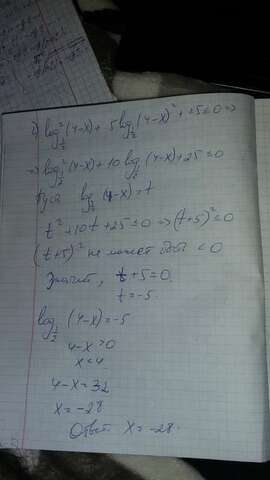 1) log²_{1/2} (4-x) + 5 log_{1/2} (4-x)² + 25 ≤ 0 ⇒
⇒ log²_{1/2} (4-x) + 10 log_{1/2} (4-x) + 25 ≤ 0
Пусть log_{1/2} (4-x) = t
t² + 10t + 25 ≤ 0 ⇒ (t+5)² ≤ 0
(t+5)² не может быть < 0
Значит, t+5=0
t=-5.
log_{1/2} (4-x) = -5
4-x>0
x<4
4-x=32
x=-28
Ответ x=-28.